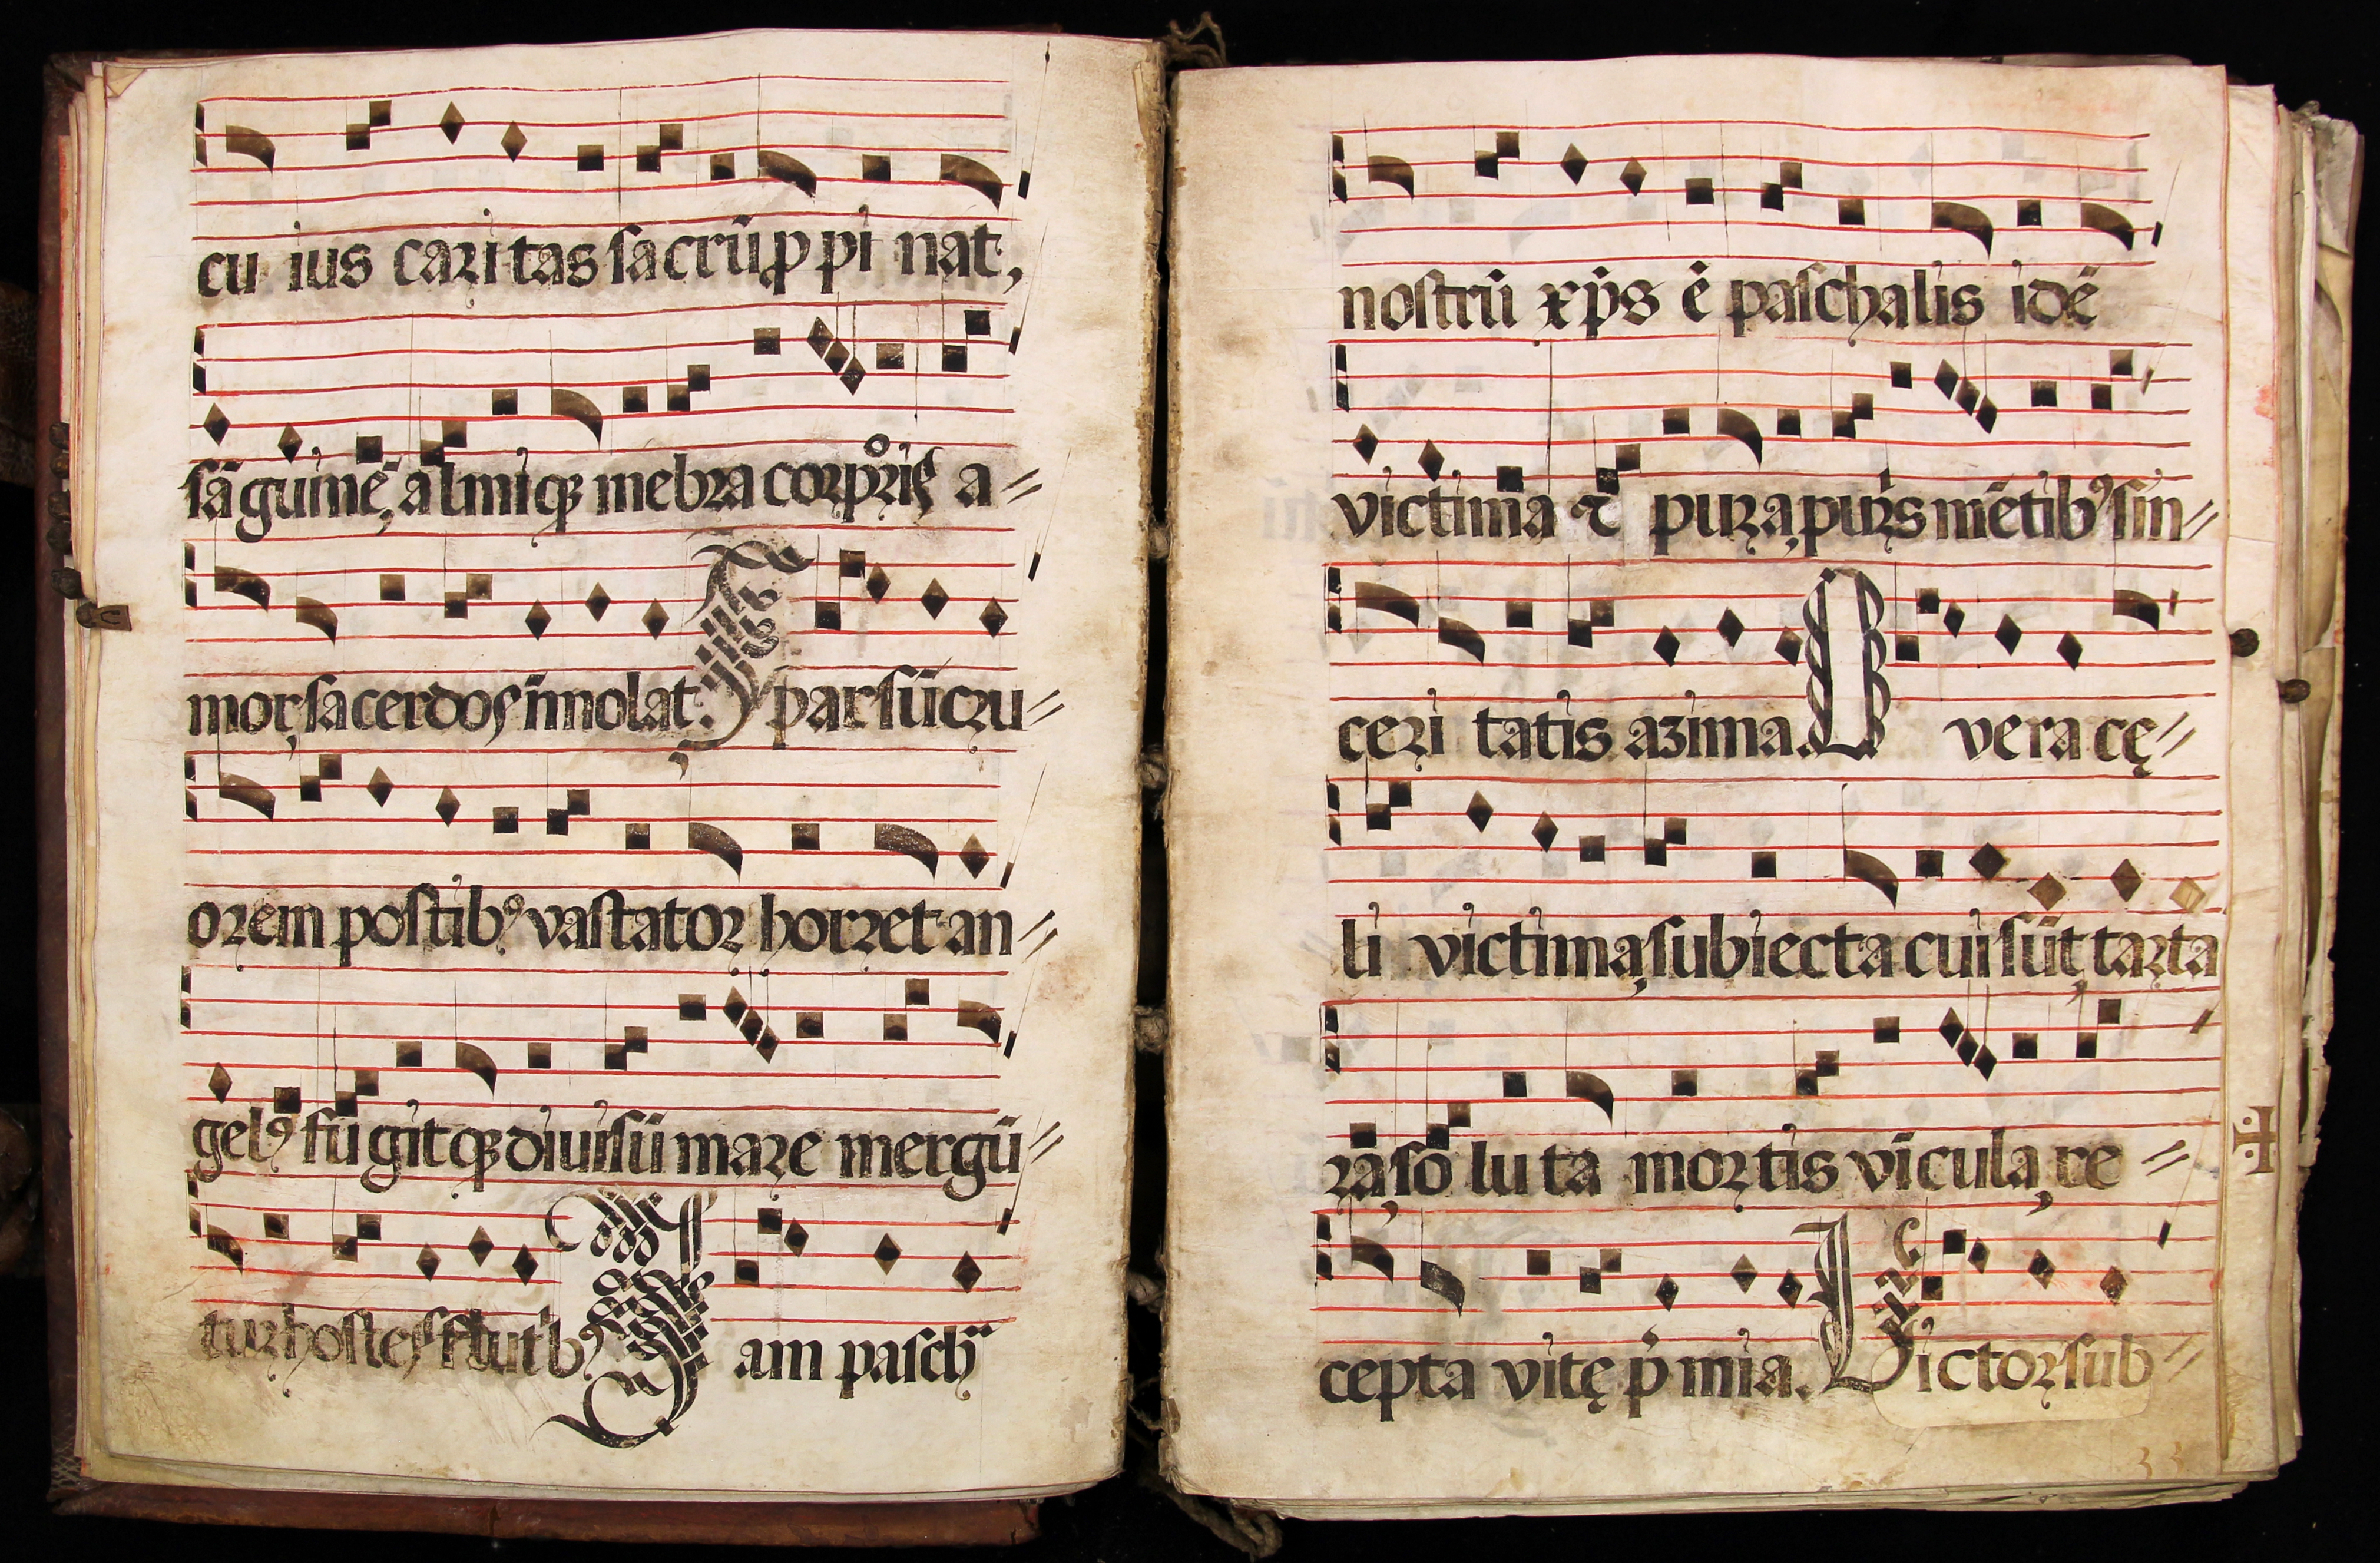 cu ius caritas sacrū ꝓ pi nat,
sāguinē, almiqꝫ mēbra corpꝛis a⸗
mor sacerdos īmolat. Sparsū cru⸗
orem postibꝰ vastator horret an⸗
gelꝰ fugitqꝫ diuisū mare mergū⸗
tur hostes flutibꝰ Iam pasch
nostrū xp̄s ē paschalis idē
victima ⁊ pura, puris mētibꝰ sin⸗
ceri tatis azima. O vera cę⸗
li victima, subiecta cui sūt, tarta
ra, so luta mortis vīcula, re⸗
cepta vitę p̄ mia. Victor sub⸗
33